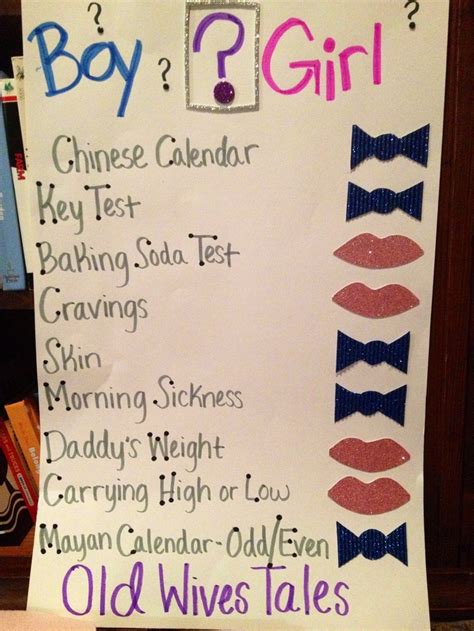 Boy ? Girl
?
?
?
Chinese Calendar
Key Test
Baking Soda Test
Cravings
Skin
Morning Sickness
Daddy's Weight
Carrying High or Low
Mayan Calendar-Odd/Even
Old Wives Tales
FARM